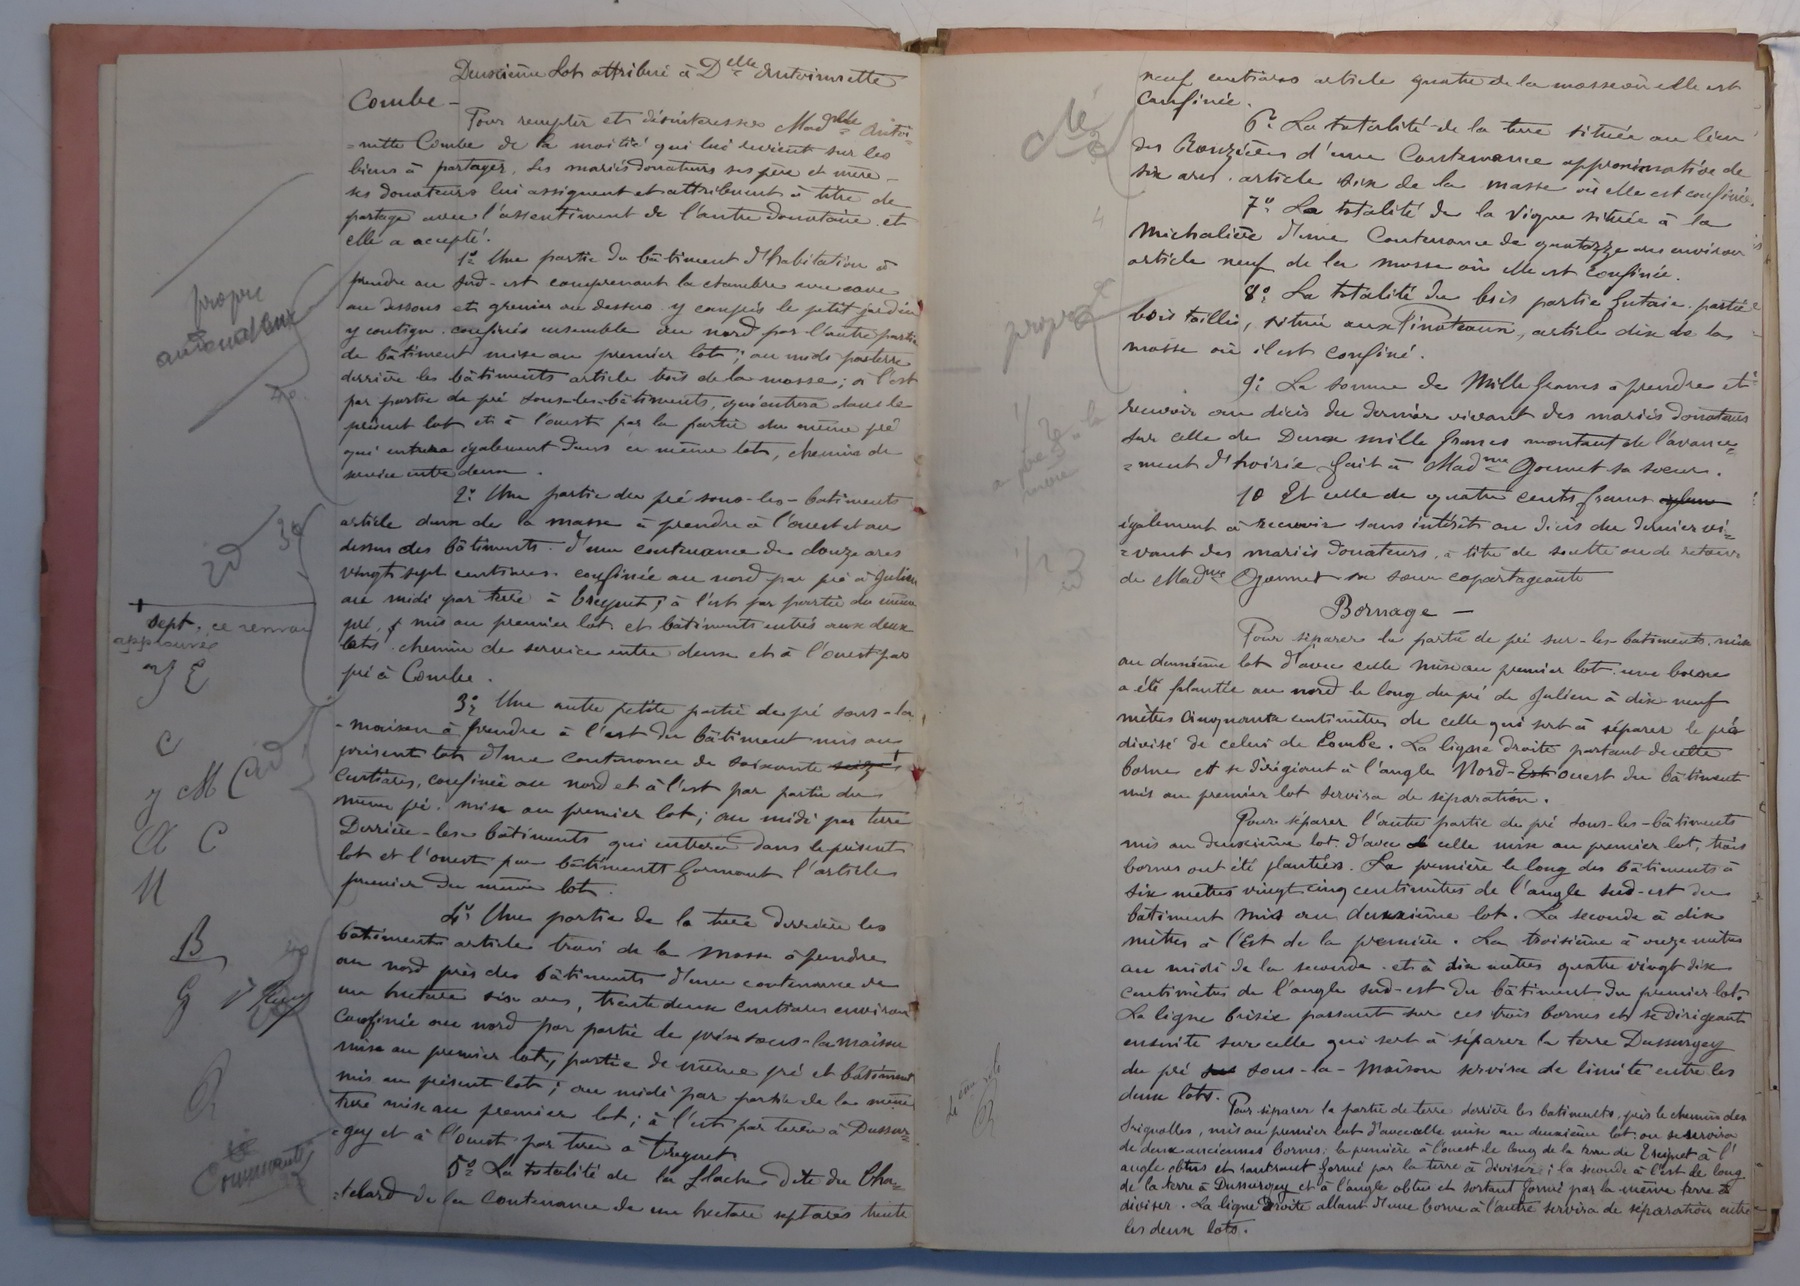 Deuxième Lot attribué à Delle Antoinette
Combe -
Pour remplir et désintéresser Madelle Antoi-
=nette Combe de la moitié qui lui revient sur les
biens à partager, les mariés donateurs ses père et mère -
ses donateurs lui assignent et attribuent à titre de
partage avec l'assentiment de l'autre donataire et
elle a accepté.
1° Une partie du bâtiment d'habitation à
prendre au Sud-est comprenant la chambre une cave
au dessous et grenier au dessus y compris le petit jardin
y contigu. confinés ensemble au nord par l'autre partie
de bâtiment mise au premier lot ; au midi par terre
derrière les bâtiments article trois de la masse ; à l'est
par partie de pré sous-les-bâtiments, qui entrera dans le
présent lot et à l'ouest par la partie du même pré
qui entrera également dans ce même lot, chemin de
service entre deux.
2° Une partie du pré sous-les-batiments
article deux de la masse à prendre à l'ouest et au
dessus des bâtiments. d'une contenance de douze ares
vingt sept centiares. confinée au nord par pré à Julien
au midi par terre à Treynet ; à l'est par partie du même
pré, mis au premier lot et bâtiments entrés aux deux
lots. chemin de service entre deux et à l'ouest par
pré à Combe.
3° Une autre petite partie de pré sous-la
-maison à prendre à l'est du bâtiment mis au
présent lot d'une contenance de soixante seize
centiares, confinée au nord et à l'est par partie du
même pré mise au premier lot ; au midi par terre
Derrière-les-bâtiments qui entrera dans le présent
lot et l'ouest par bâtiments formant l'article
premier du même lot.
4° Une partie de la terre derrière les
bâtiments article trois de la masse à prendre
au nord près des bâtiments d'une contenance de
un hectare six ares, trente deux centiares environ
confinée au nord par partie de pré sous-la maison
mise au premier lot, partie de même pré et bâtiment
mis au présent lot ; au midi par partie de la même
terre mise au premier lot ; à l'est par terre à Dussur=
=gey et à l'ouest par terre à Treynet.
5° La totalité de la flache dite du Cha=
=telard de la contenance de un hectare sept ares trente
propre
antoinette
sept. ce renvoi
approuvé
J E
C
y M C
A C
N
B
G
Communauté
neuf centiares article quatre de la masse où elle est
confinée.
6° La totalité de la terre située au lieu
des Rouzières d'une Contenance approximative de
six ares. article six de la masse où elle est confinée.
7° La totalité de la Vigne située à la
Michalière d'une Contenance de quatorze ares environ
article neuf de la masse où elle est Confinée.
8° La totalité du bois partie futaie, partie
bois taillis, située aux Pinateaux, article dix de la
masse où il est confiné.
9° La somme de Mille francs à prendre et
recevoir au décès du dernier vivant des mariés donateurs
sur celle de Deux mille francs montant de l'avance=
=ment d'hoirie fait à Madme Gounet sa sœur.
10 Et celle de quatre cents francs
également à recevoir sans intérêts au décès du dernier vi=
=vant des mariés donateurs, à titre de soulte ou de retour
de Madme Gonnet sa sœur copartageante
Bornage -
Pour séparer la partie de pré sur-les-batiments, mise
au deuxième lot d'avec celle mise au premier lot une borne
a été plantée au nord le long du pré de Julien à dix neuf
mètres cinquante centimètres de celle qui sert à séparer le pré
divisé de celui de Combe. La ligne droite partant de cette
borne et se dirigeant à l'angle Nord-Est ouest du bâtiment
mis au premier lot servira de séparation.
Pour séparer l'autre partie de pré sous-les-bâtiments
mis au deuxième lot d'avec celle mise au premier lot, trois
bornes ont été plantées. La première le long des bâtiments à
six mètres vingt cinq centimètres de l'angle sud-est du
bâtiment mis au deuxième lot. La seconde à dix
mètres à l'Est de la première. La troisième à onze mètres
au midi de la seconde et à dix mètres quatre vingt dix
centimètres de l'angle sud-est du bâtiment du premier lot.
La ligne brisée passant sur ces trois bornes et se dirigeant
ensuite sur celle qui sert à séparer la terre Dussurgey
du pré sous-la-Maison servira de limite entre les
deux lots.
Pour séparer la partie de terre derrière les batiments, près le chemin des
Frignolles, mis au premier lot d'avec celle mise au deuxième lot on se servira
de deux anciennes bornes ; la première à l'ouest le long de la terre de Treynet à l'
angle obtus et rentrant formé par la terre à diviser ; la seconde à l'est le long
de la terre à Dussurgey et à l'angle obtus et sortant formé par la même terre à
diviser. La ligne Droite allant d'une borne à l'autre servira de séparation entre
les deux lots.